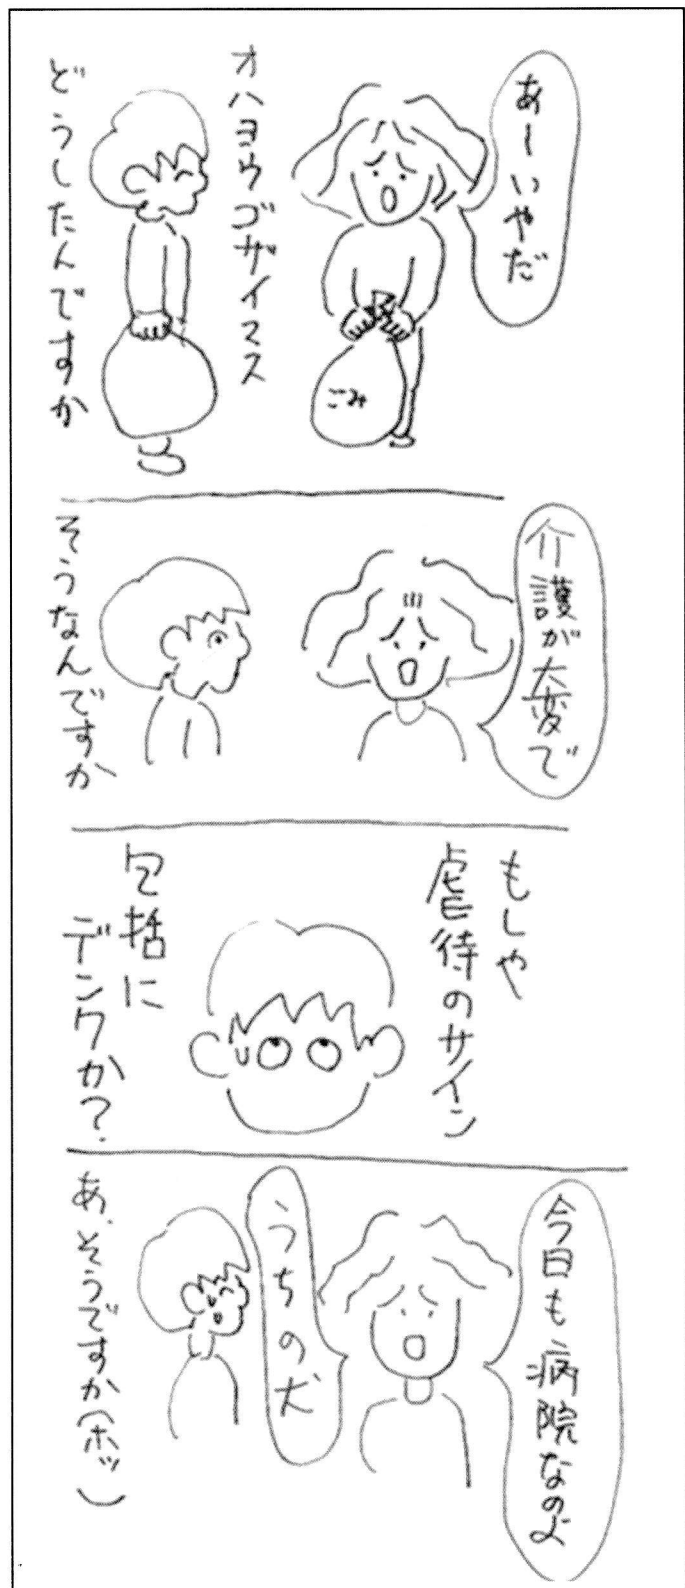 あーいやだ
ごみ
オハヨウゴザイマス
どうしたんですか
介護が大変で
そうなんですか
もしや
虐待のサイン
包括に
デンワか?
今日も病院なのよ
うちの犬
あ、そうですか(ホッ)